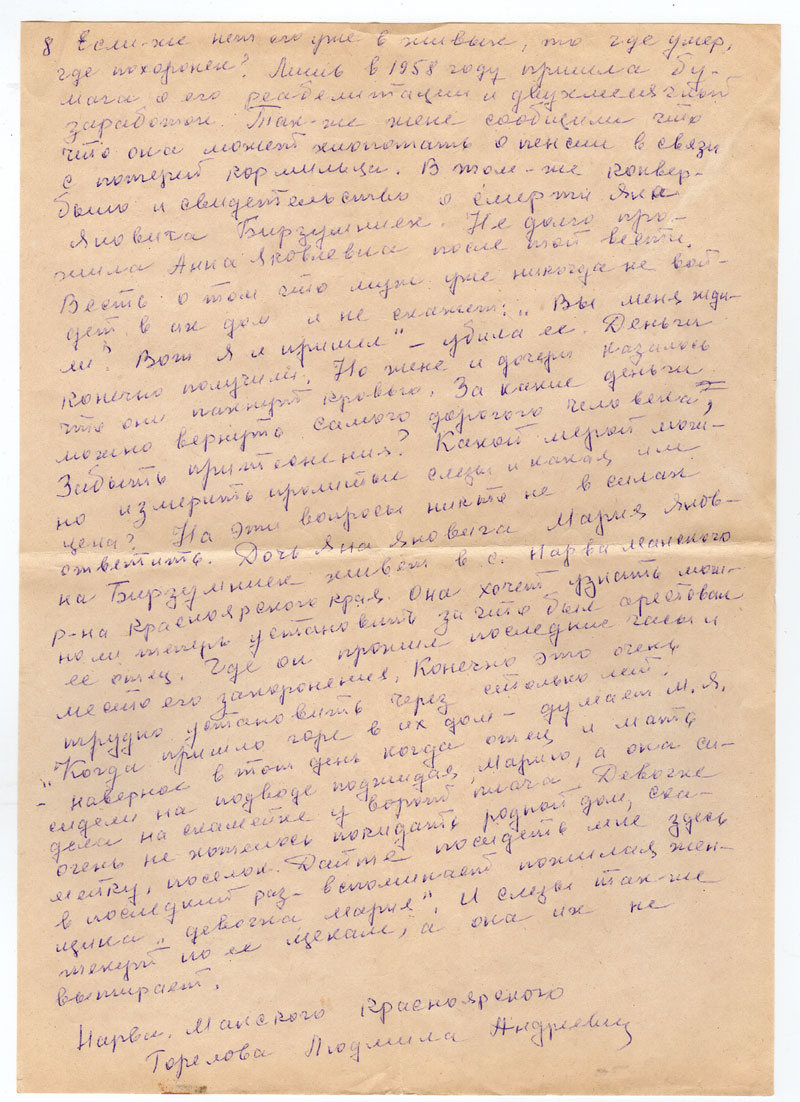 8 Если-же нет его уже в живых, то где умер,
где похоронен? Лишь в 1958 году пришла бу-
мага о его реабелитации и двухмесячной
заработок. Так-же жене сообщили что
что она может хлопотать о пенсии в связи
с потерей кормильца. В том-же конвер-
было и свидетельство о смерти Яна
Яновича Бирзумниек. Не долго про-
жила Анна Яковлевна после той вести.
Весть о том что муж уже никогда не вой-
дет в их дом и не скажет: „Вы меня жда-
ли? Вот я и пришел" – убила ее. Деньги
конечно получили. Но жене и дочери казалось
что они пахнут кровью. За какие деньги
можно вернуть самого дорогого человека,
Забыть притеснения? Какой мерой мож-
но измерить пролитые слезы и какая им
цена? На эти вопросы никто не в силах
ответить. Дочь Яна Яновича Мария Янов-
на Бирзумниек живет в с. Нарва Манского
р-на Красноярского края. Она хочет узнать мож-
но ли теперь установить за что был арестован
ее отец. Где он прожил последние часы и
место его захоронения. Конечно это очень
трудно установить через столько лет.
"Когда пришло горе в их дом – думает М. Я.
– наверное в тот день когда отец и мать
сидели на подводе поджидая Марию, а она си-
дела на скамейке у ворот плача Девочке
очень не хотелось покидать родной дом, ска-
мейку, поселок. Дайте посидеть мне здесь
в последний раз – вспоминает пожилая жен-
щина „девочка Мария". И слезы так-же
текут по ее щекам, а она их не
вытирает.
Нарва. Манского Красноярского
Горелова Людмила Андреевна